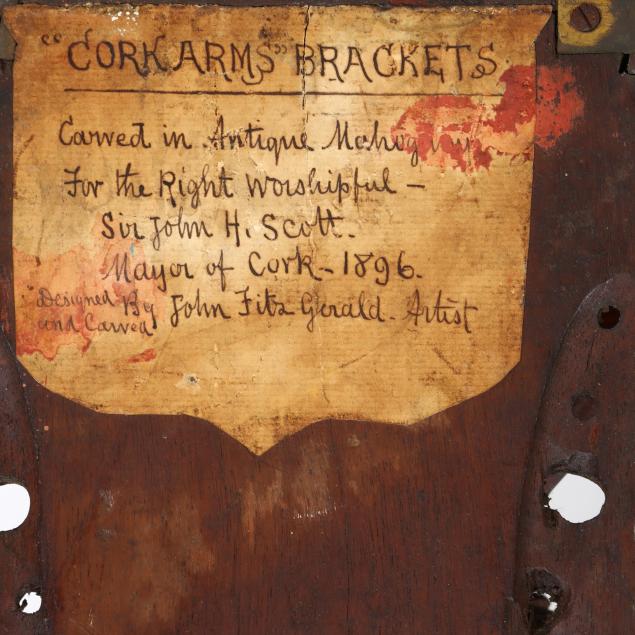 "CORK ARMS" BRACKETS.
Carved in Antique Mahogany
For the Right Worshipful –
Sir John H. Scott.
Mayor of Cork – 1896.
Designed By
and Carved John Fitz Gerald. Artist